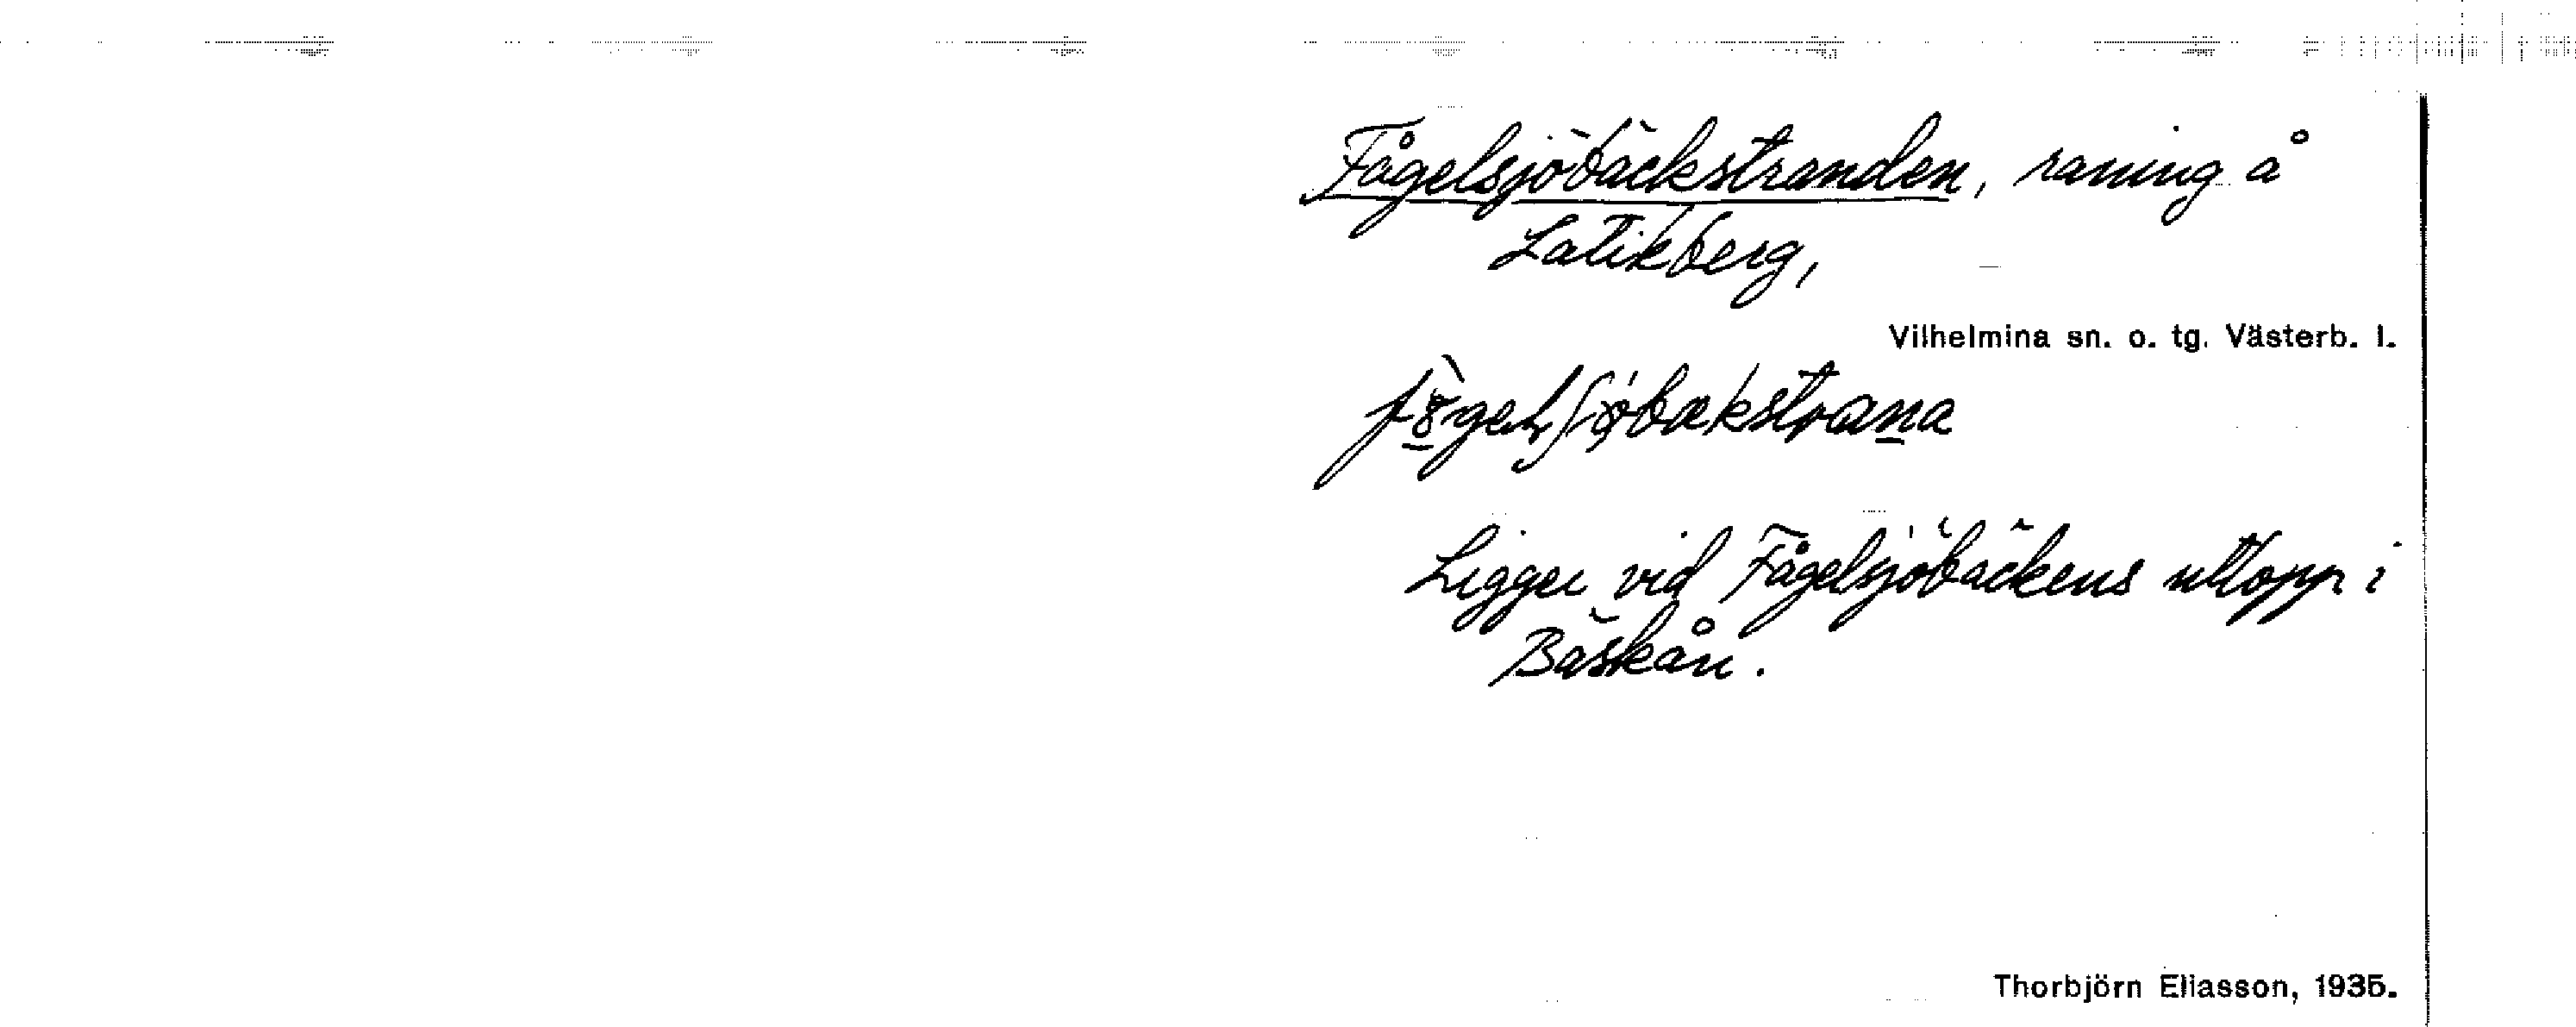 Fågelsjöbäckstranden, raning å
Latikberg,
Vilhelmina sn. o. tg. Västerb. l.
Ligger vid Fågelsjöbäckens utlopp i
Bäskån.
Thorbjörn Eliasson, 1935.